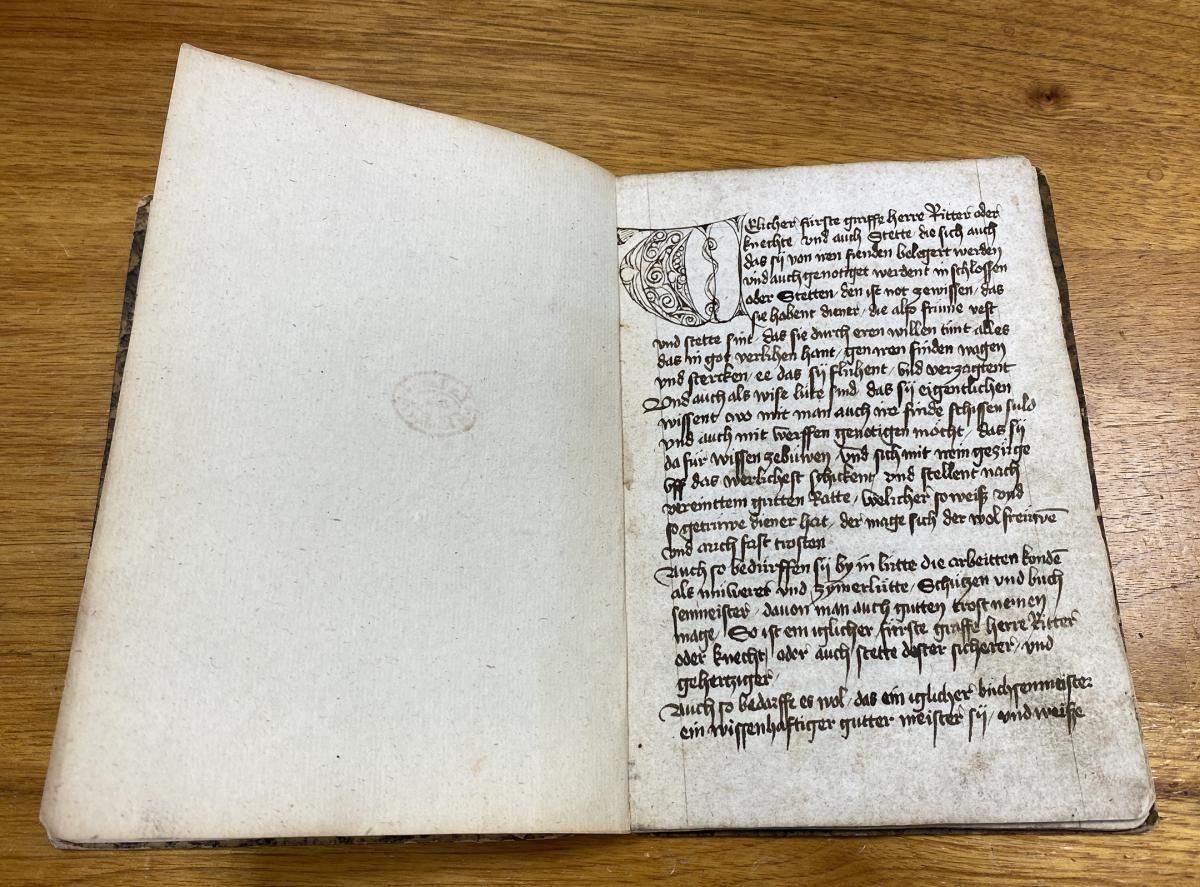 Welicher fürste graffe herre Ritter oder
knechte vnd auch Stette die sich auch
das sÿ von iren fienden belegert werden
vnd auch genötiget werdent in schlossen
oder Stetten, den ist not zewissen, das
sie habent diener, die alß frume vest
vnd stette sint, das sie durch eren willen tünt alles
das in got verlihen hant, gen iren finden wagen
vnd stercken, ee das sÿ flühent, vnd verzagtent
Vnd auch als wise lüte sind, das sÿ eigentlichen
wissent, wo mit man auch ire finde schissen
vnd auch mit werffen genötigen möcht, das sÿ
da für wissen zebüwen, Vnd sich mit irem gezüge
vff das werlichest schickent, vnd stellent nach
vereinttem gutten Ratte, welicher so weiß vnd
so getrüwe diener hat, der mage sich der wol freüwē
vnd auch fast trosten
Auch so bedürffen sÿ by in lütte die arbeitten kondē
als mŭrer vnd zÿmerlütte, Schützen vnd büch
senmeister, dauon man auch gutten trost nemen
mage, So ist ein iglicher fürste graffe herre Ritter
oder knecht, oder auch stette dester sicherer, vnd
gehertziger,
Auch so bedarffe es wol, das ein iglicher büchsenmeister
ein wissenhaftiger gutter meister sÿ, vnd weiße